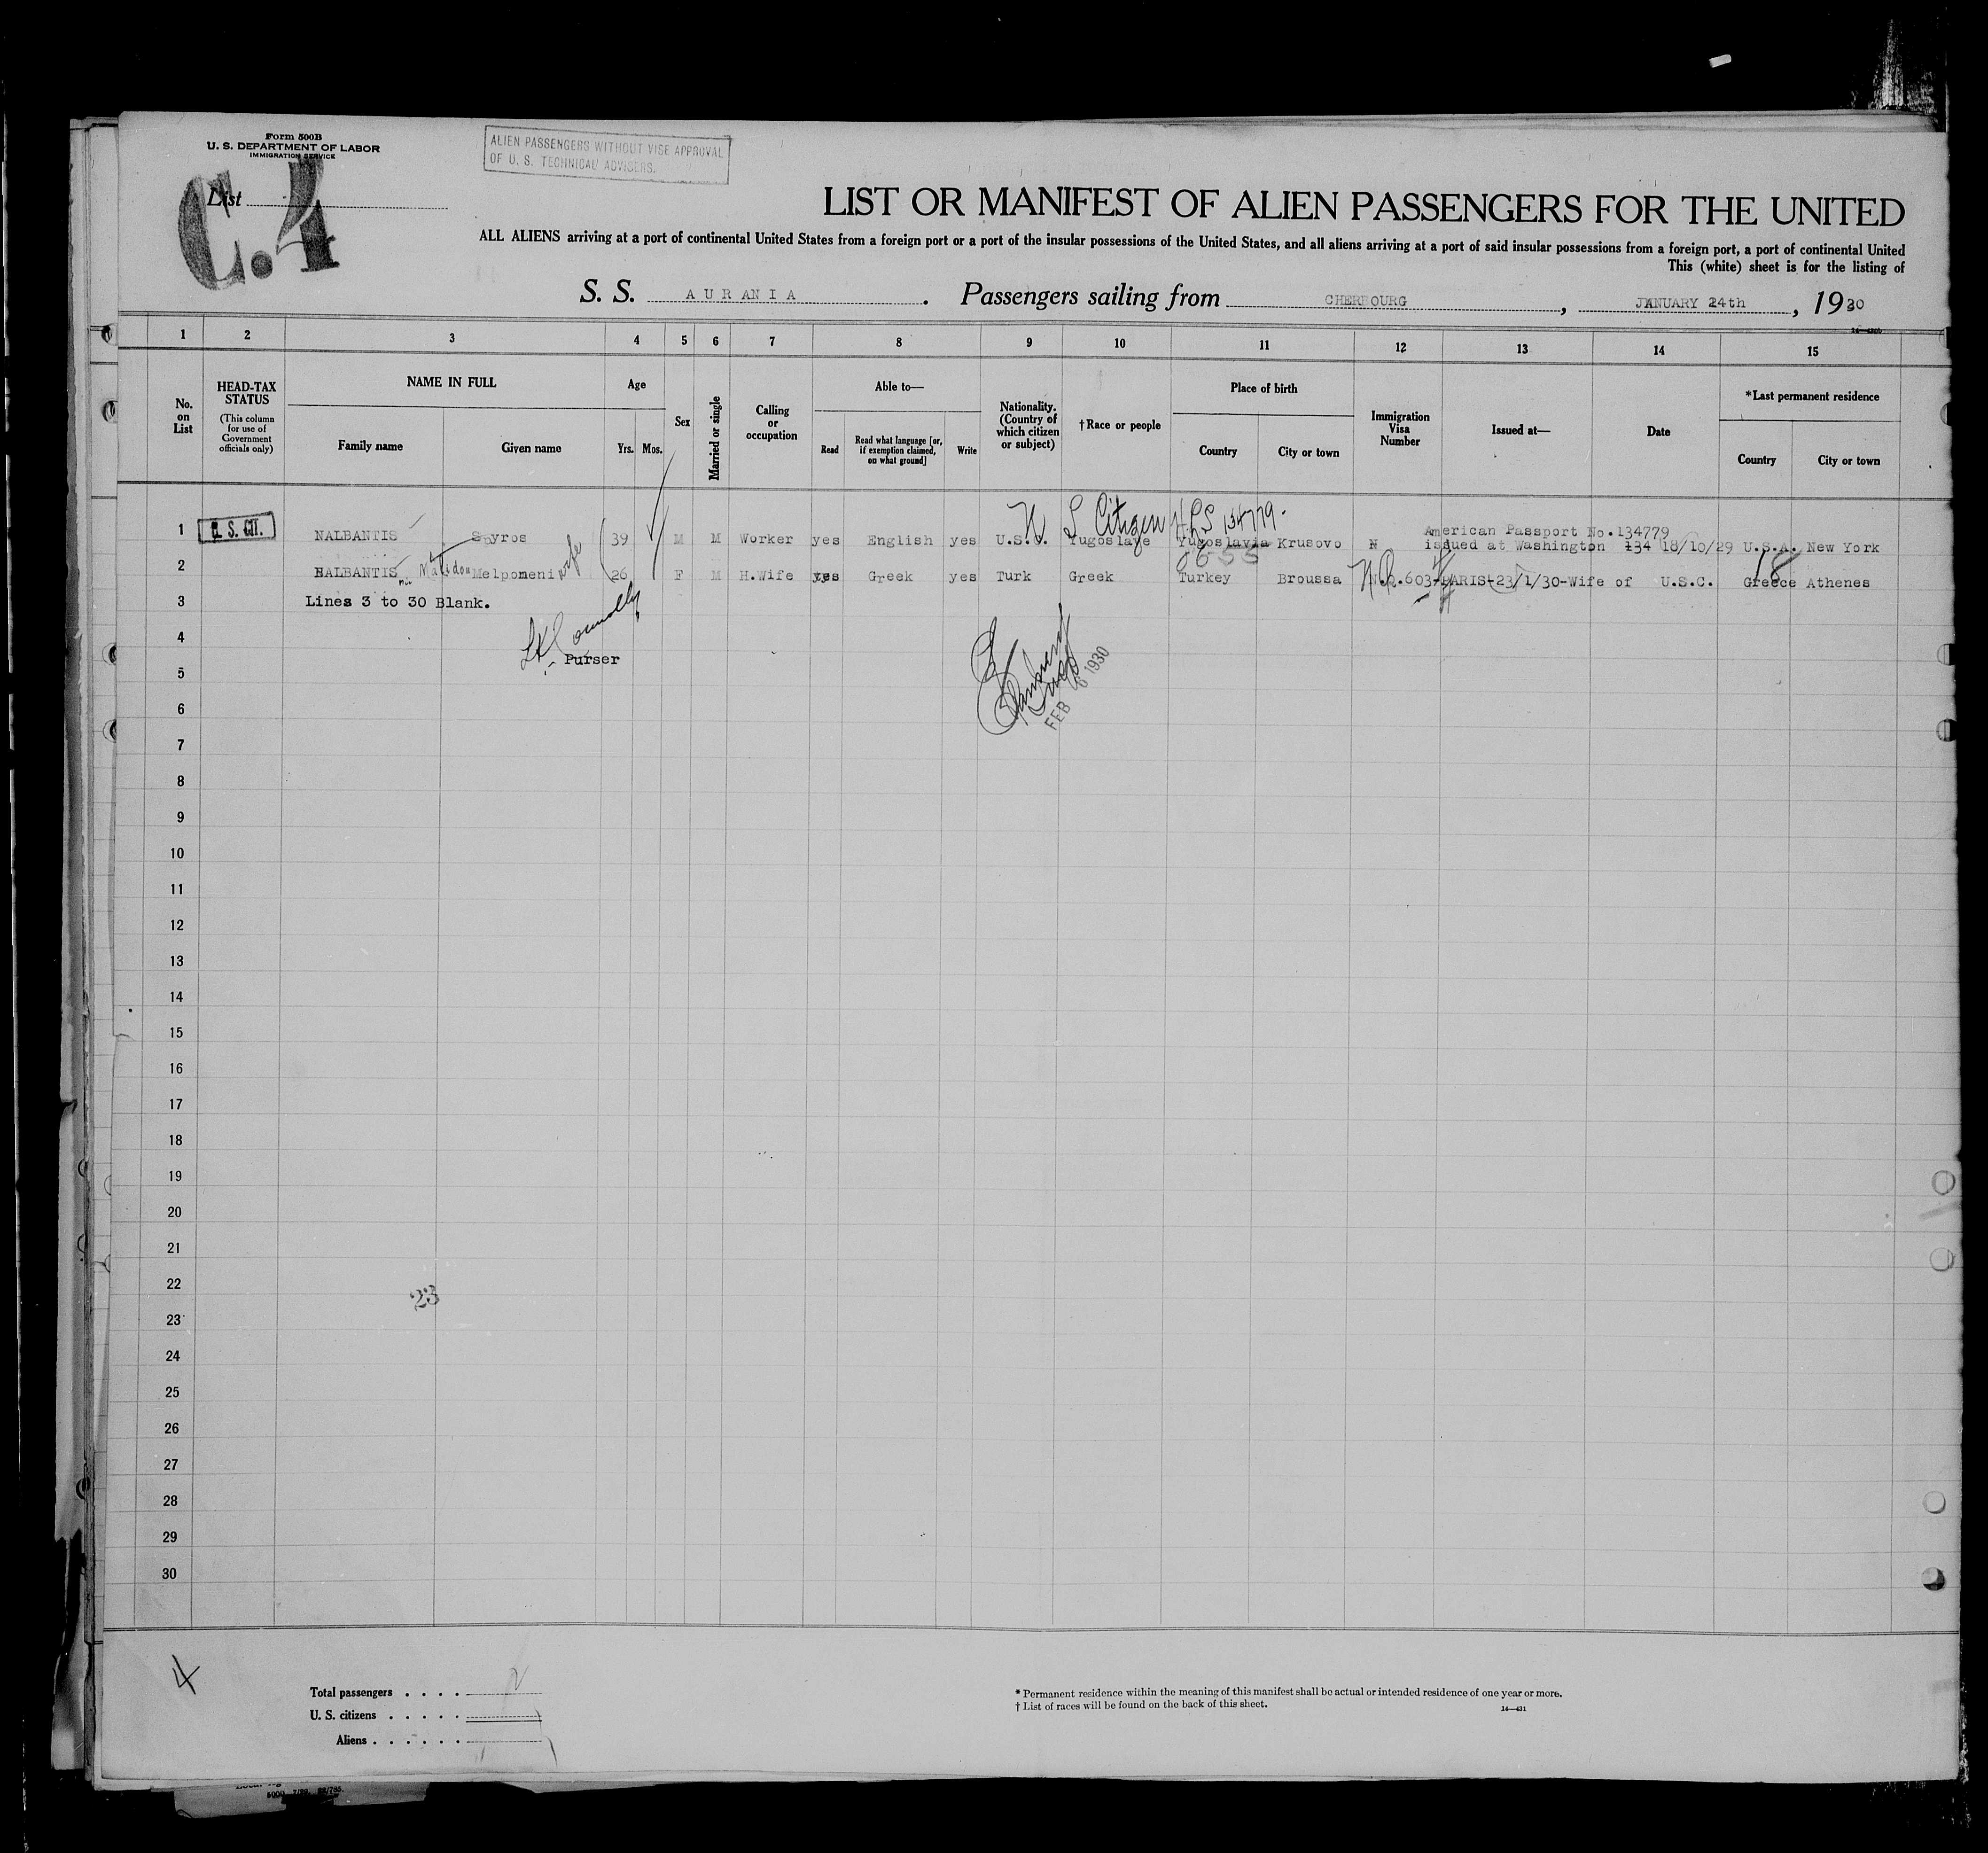 Form 500B
U. S. DEPARTMENT OF LABOR
IMMIGRATION SERVICE
ALIEN PASSENGERS WITHOUT VISE APPROVAL
OF U. S. TECHNICAL ADVISERS.
List
C.4
LIST OR MANIFEST OF ALIEN PASSENGERS FOR THE UNITED
ALL ALIENS arriving at a port of continental United States from a foreign port or a port of the insular possessions of the United States, and all aliens arriving at a port of said insular possessions from a foreign port, a port of continental United
This (white) sheet is for the listing of
S. S. AURANIA. Passengers sailing from CHERBOURG, JANUARY 24th, 1930
1 2 3 4 5 6 7 8 9 10 11 12 13 14 15
No. on List
HEAD-TAX STATUS
(This column for use of Government officials only)
NAME IN FULL
Family name Given name
Age
Yrs. Mos.
Sex
Married or single
Calling or occupation
Able to—
Read
Read what language [or, if exemption claimed, on what ground]
Write
Nationality. (Country of which citizen or subject)
†Race or people
Place of birth
Country City or town
Immigration Visa Number
Issued at—
Date
*Last permanent residence
Country City or town
U S Citizen 134779
American Passport No.134779
1 U. S. CIT. NALBANTIS Spyros 39 M M Worker yes English yes U.S.A. Yugoslave Yugoslavia Krusovo issued at Washington 134 18/10/29 U.S.A. New York
2 NALBANTIS Melpomeni wife 26 F M H.Wife yes Greek yes Turk Greek Turkey Broussa N.Q.603-PARIS-23/1/30-Wife of U.S.C. Greece Athenes
18
3 Lines 3 to 30 Blank.
4
Purser
5
FEB 6 1930
6
7
8
9
10
11
12
13
14
15
16
17
18
19
20
21
22
23
23
24
25
26
27
28
29
30
4
Total passengers . . . . 2
U. S. citizens . . . . .
Aliens . . . . . .
* Permanent residence within the meaning of this manifest shall be actual or intended residence of one year or more.
† List of races will be found on the back of this sheet.
14—431